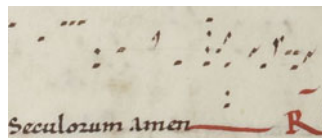 Seculorum Amen R